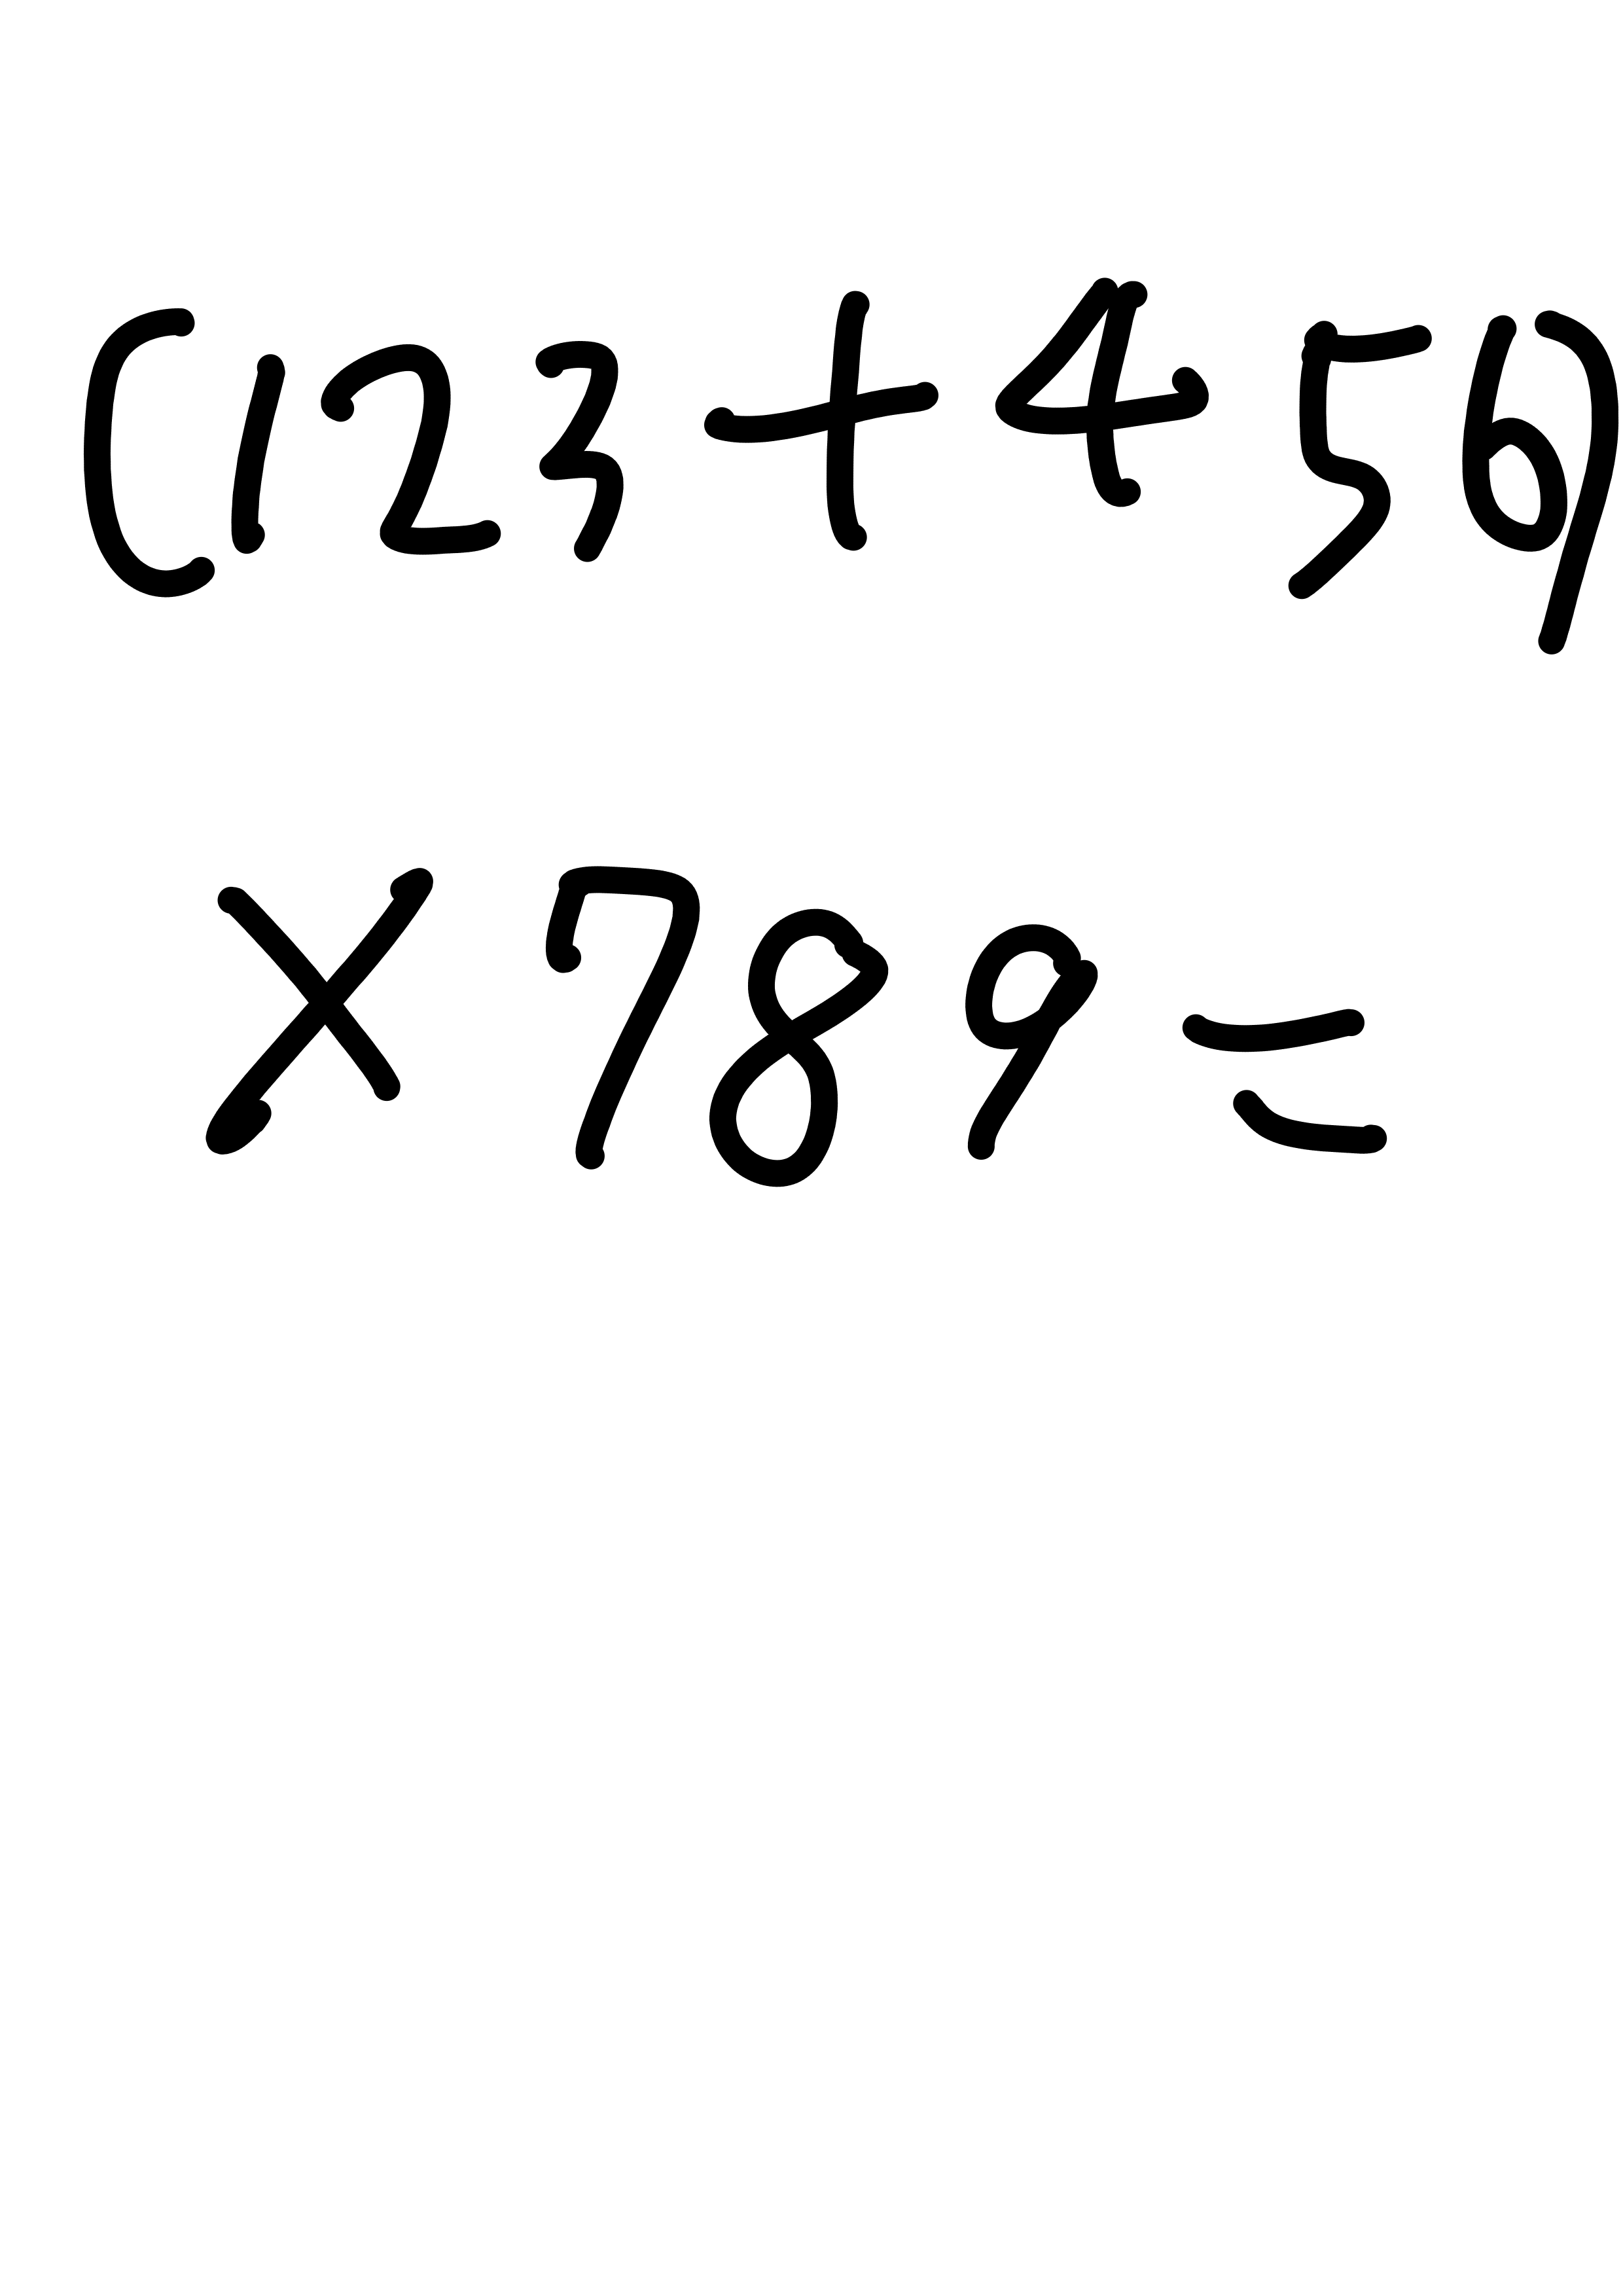 (123+456)
×789=